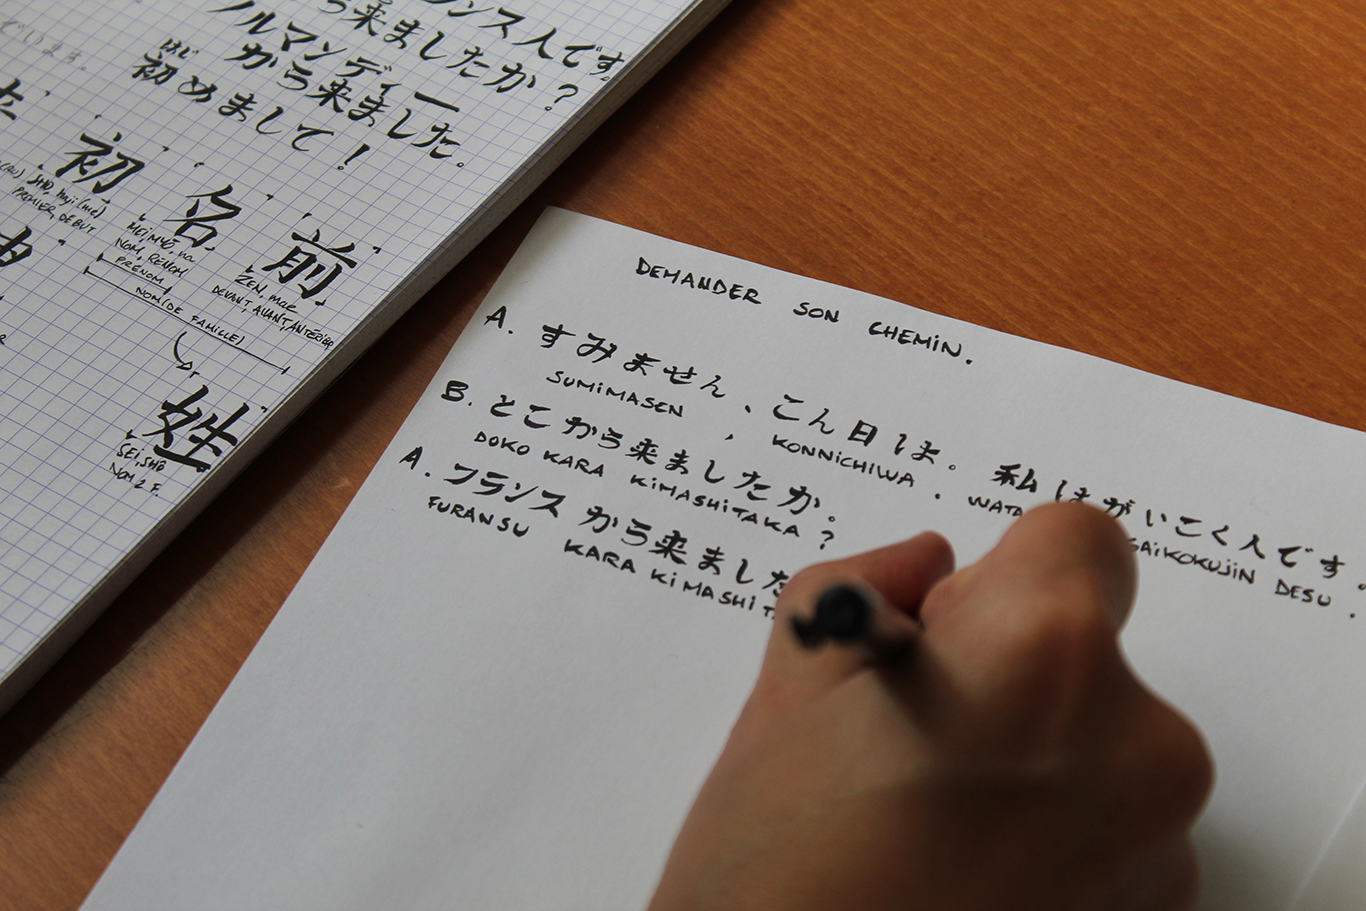 ンス人です。
来ましたか?
ノルマンディー
から来ました。
はじ
初めまして!
初
SHO, haji(me)
PREMIER, DEBUT
名
MEI, MYŌ, na
NOM, RENOM
PRÉNOM
前
ZEN, mae
DEVANT, AVANT,
NOM (DE FAMILLE)
姓
SEI, SHŌ
NOM 2 F.
DEMANDER SON CHEMIN.
A. すみません、こん日は。私はがいこく人です。
SUMIMASEN, KONNICHIWA. WATA GAIKOKUJIN DESU.
B. とこから来ましたか。
DOKO KARA KIMASHITAKA?
A. フランスから来ました
FURANSU KARA KIMASHIT